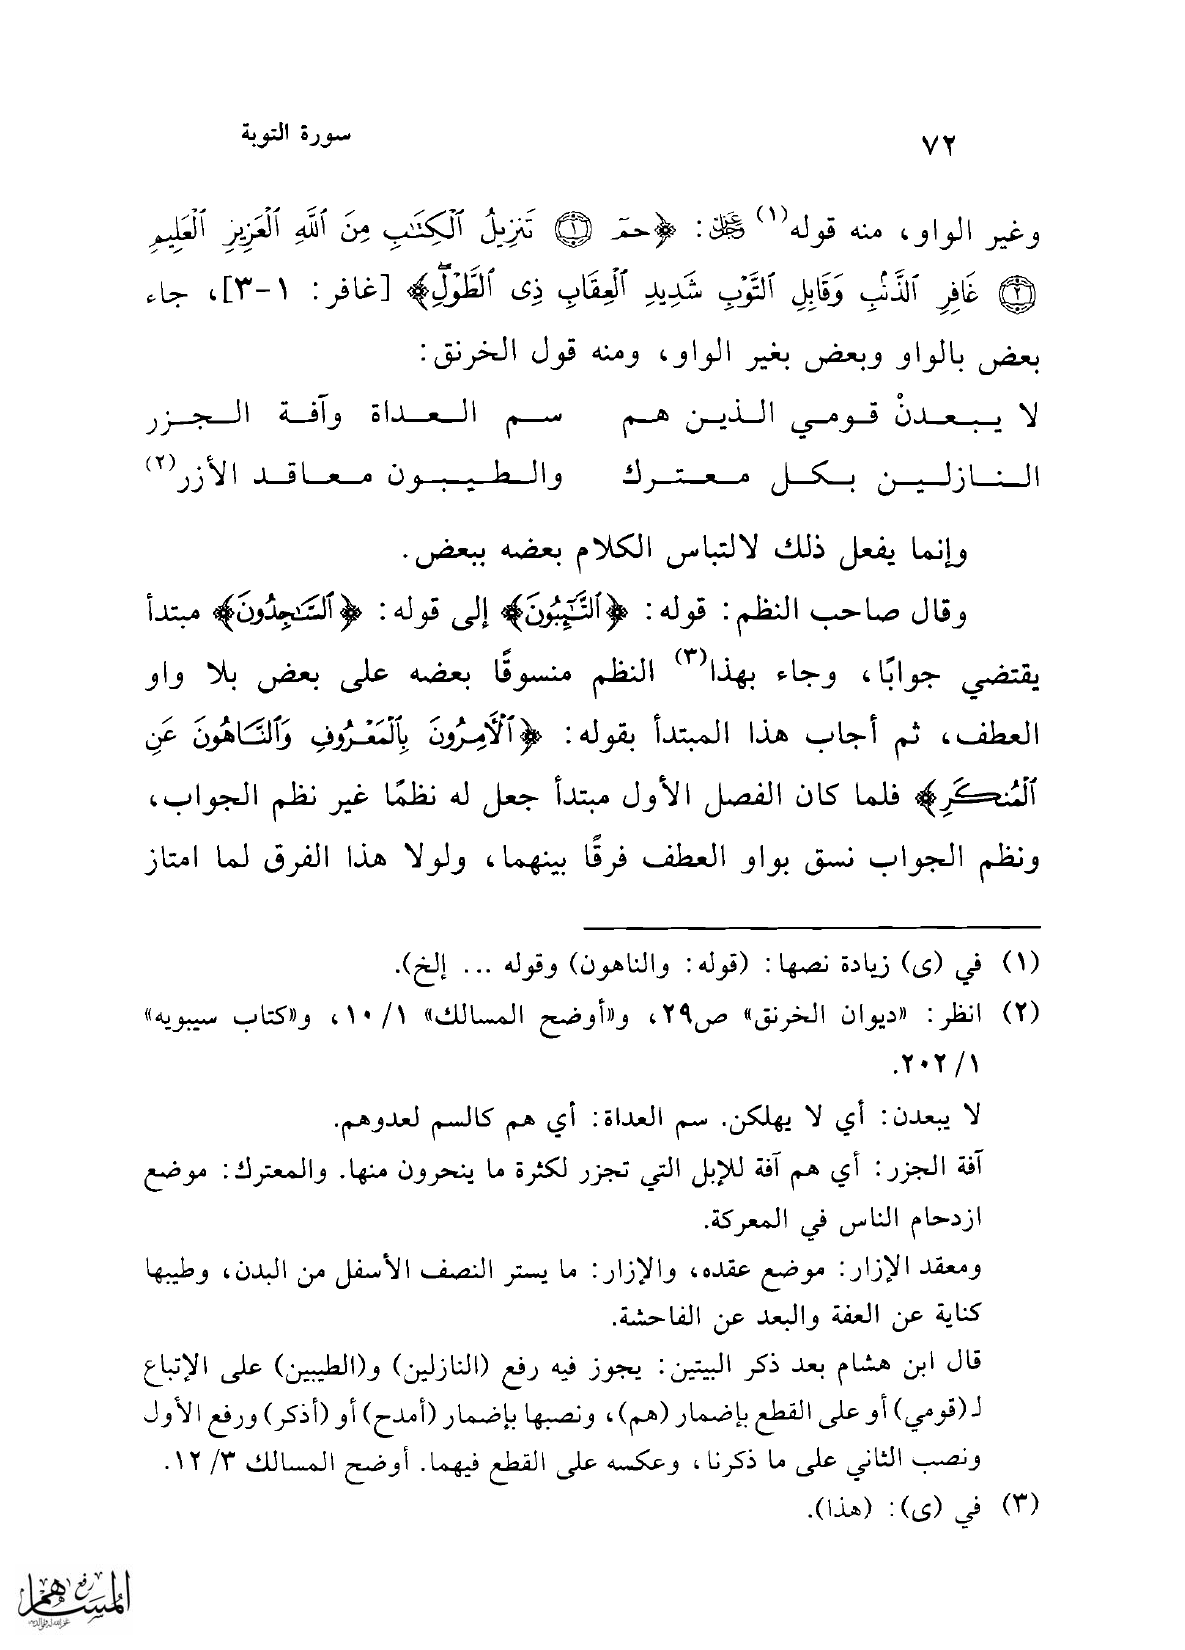 ٧٢
سورة التوبة
وغير الواو، منه قوله(١) ﷿: ﴿حمٓ ۝١ تَنزِيلُ ٱلْكِتَٰبِ مِنَ ٱللَّهِ ٱلْعَزِيزِ ٱلْعَلِيمِ
۝٢ غَافِرِ ٱلذَّنۢبِ وَقَابِلِ ٱلتَّوْبِ شَدِيدِ ٱلْعِقَابِ ذِى ٱلطَّوْلِۖ﴾ [غافر: ١-٣]، جاء
بعض بالواو وبعض بغير الواو، ومنه قول الخرنق:
لا يبعدنْ قومي الذين هم سم العداة وآفة الجزر
النازلين بكل معترك والطيبون معاقد الأزر(٢)
وإنما يفعل ذلك لالتباس الكلام بعضه ببعض.
وقال صاحب النظم: قوله: ﴿ٱلتَّٰٓئِبُونَ﴾ إلى قوله: ﴿ٱلسَّٰجِدُونَ﴾ مبتدأ
يقتضي جوابًا، وجاء بهذا(٣) النظم منسوقًا بعضه على بعض بلا واو
العطف، ثم أجاب هذا المبتدأ بقوله: ﴿ٱلْأَمِرُونَ بِٱلْمَعْرُوفِ وَٱلنَّاهُونَ عَنِ
ٱلْمُنكَرِ﴾ فلما كان الفصل الأول مبتدأ جعل له نظمًا غير نظم الجواب،
ونظم الجواب نسق بواو العطف فرقًا بينهما، ولولا هذا الفرق لما امتاز
(١) في (ى) زيادة نصها: (قوله: والناهون) وقوله ... إلخ).
(٢) انظر: «ديوان الخرنق» ص٢٩، و«أوضح المسالك» ١/ ١٠، و«كتاب سيبويه»
١/ ٢٠٢.
لا يبعدن: أي لا يهلكن. سم العداة: أي هم كالسم لعدوهم.
آفة الجزر: أي هم آفة للإبل التي تجزر لكثرة ما ينحرون منها. والمعترك: موضع
ازدحام الناس في المعركة.
ومعقد الإزار: موضع عقده، والإزار: ما يستر النصف الأسفل من البدن، وطيبها
كناية عن العفة والبعد عن الفاحشة.
قال ابن هشام بعد ذكر البيتين: يجوز فيه رفع (النازلين) و(الطيبين) على الإتباع
لـ(قومي) أو على القطع بإضمار (هم)، ونصبها بإضمار (أمدح) أو (أذكر) ورفع الأول
ونصب الثاني على ما ذكرنا، وعكسه على القطع فيهما. أوضح المسالك ٣/ ١٢.
(٣) في (ى): (هذا).
رفع
المساهم